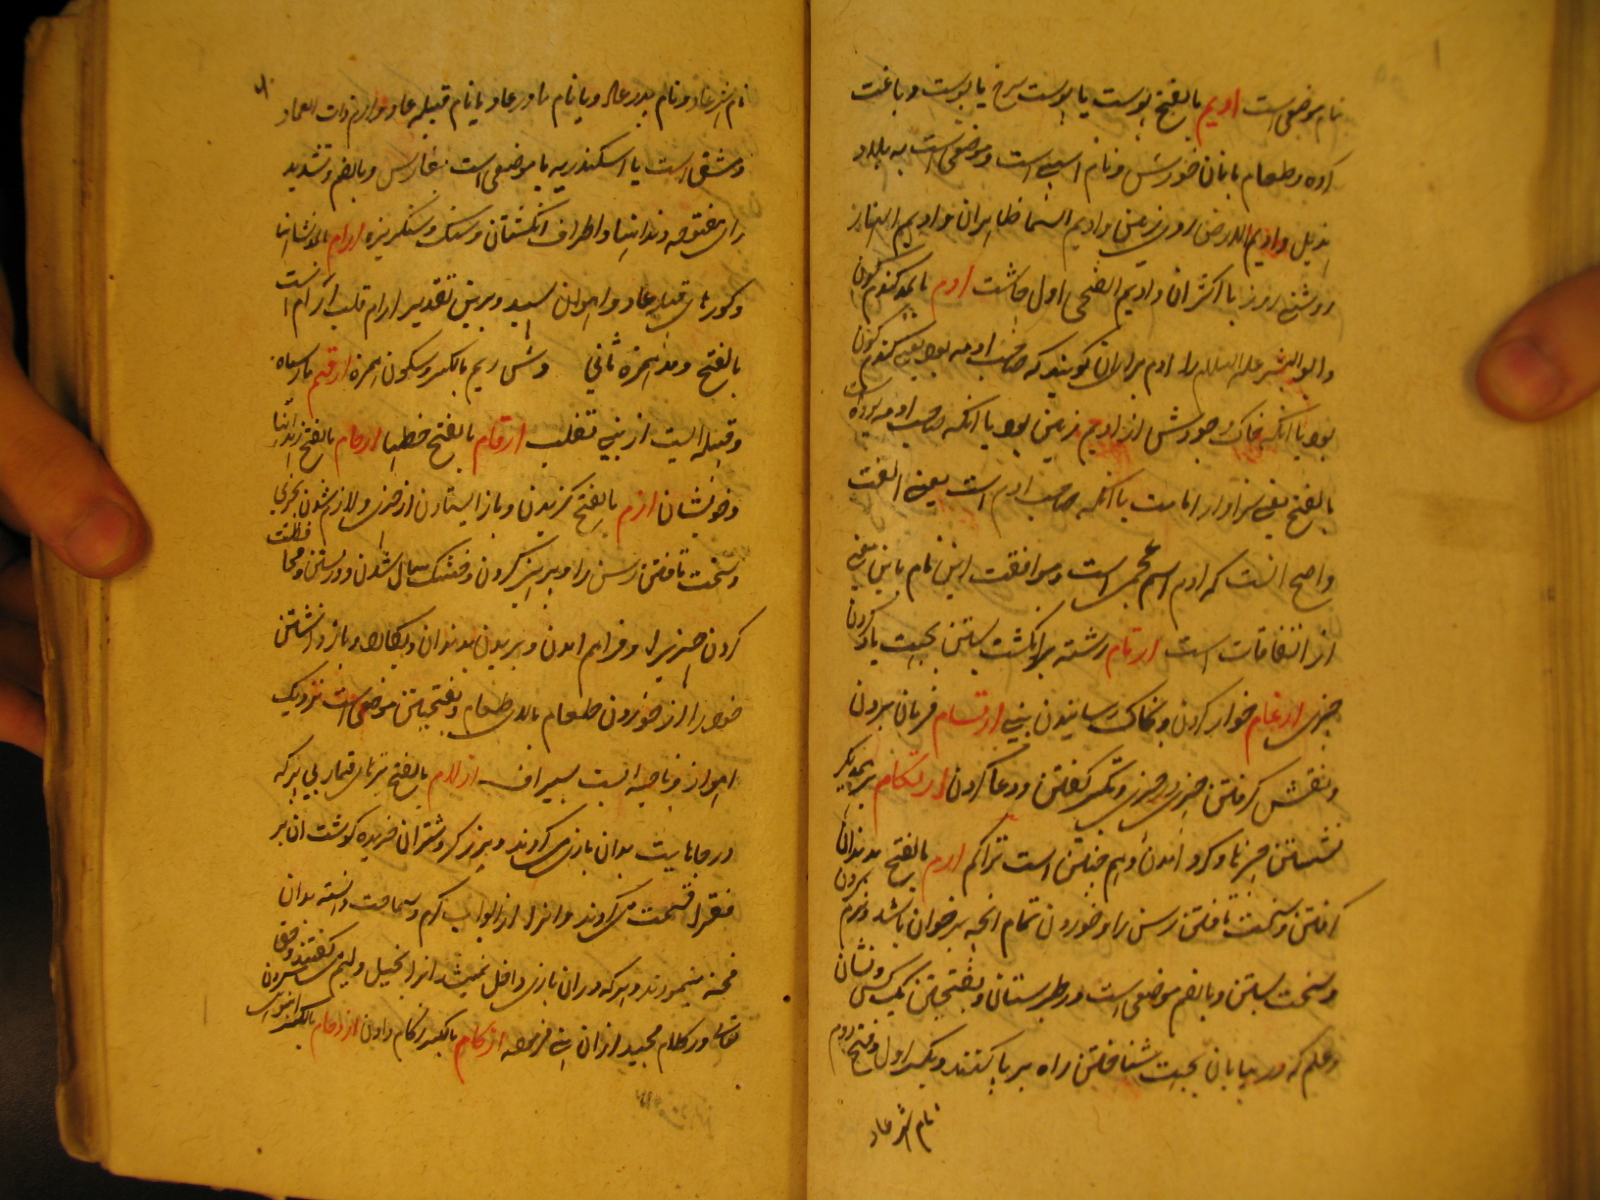 نام موضعی است ادیم بالفتح پوست یا پوست سرخ یا پوست دباغت
کرده و طعام با نان خورش و نام اسپی است و موضعی است به بلاد
هذیل و ادیم الارض روی زمین و ادیم السما ظاهر آن و ادیم النهار
روشنی روز یا اکثر آن و ادیم الضحی اول چاشت ادم بالمد گندم گون
و ابو البشر علیه السلام را ادم برای آن گویند که صاحب ادمه بود یعنی گندم گون
بود یا آنکه خاک وجودش از ادیم زمین بود یا آنکه صاحب ادمه بوده است
بالفتح یعنی سزاوار امامت یا آنکه صاحب ادم است یعنی الفت
و اصح آنست که ادم اسم عجمی است و موافقت این نام باین معنی
از اتفاقات است ارتام رشته بر انگشت بستن بجهت یاد کردن
چیزی ارغام خوار کردن و بخاک رسانیدن بینی ارتسام فرمان بردن
و نقش گرفتن چیزی در چیزی و تکبیر گفتن و دعا کردن ارتکام بر یکدیگر
نشستن چیزها و گرد آمدن و هم چنین است تراکم ارم بالفتح بدندان
گرفتن و سخت تافتن رسن را و خوردن تمام آنچه بر خوان باشد و نرم کردن
و سخت بستن و بالضم موضعی است در طبرستان و بفتحتین یک کس و نشان
و علم که در بیابان بجهت شناختن راه بر پا کنند و بکسر اول و فتح دوم
نام شهر عاد
نام شهر عاد و نام پدر عاد و یا نام مادر عاد یا نام قبیله عاد و ارم ذات العماد
دمشق است یا اسکندریه یا موضعی است بفارس و بالضم و تشدید
رای مفتوحه دندانها و اطراف انگشتان و سنگ و سنگریزه ارام بالمد نشانها
و گورهای قبیله عاد و آهوان سپید و برین تقدیر ارام قلب أرآم است
بالفتح و مد همزه ثانی و شش ریم بالکسر و سکون همزه ارقم مار سیاه
و قبیله ایست از بنی تغلب ارقام بالفتح خطها ارحام بالفتح زهدانها
و خویشان ازم بالفتح گزیدن و باز ایستادن از چیزی و لازم شدن بچیزی
و سخت تافتن رسن را و پرهیز کردن و خشک سال شدن و در بستن و محافظت
کردن چیزی را و فراهم آمدن و بریدن بدندان و بکارد و باز داشتن
خود را از خوردن طعام بالای طعام و بفتحتین موضعی است نزدیک
اهواز و ناحیه ایست بسیراف ازلام بالفتح تیرهای قمار بی پر که
در جاهلیت بدان بازی می کردند و بر گرد شتران خریده گوشت آن بر
فقرا قسمت می کردند و آنرا از ابواب کرم و سماحت دانسته بدان
فخر می نمودند و هر که در آن بازی داخل نمیشد آنرا بخیل و لئیم می گفتند و حق
تعالی در کلام مجید از آن نهی فرموده ازکام بالکسر زکام دادن ازدحام بالکسر انبوهی کردن